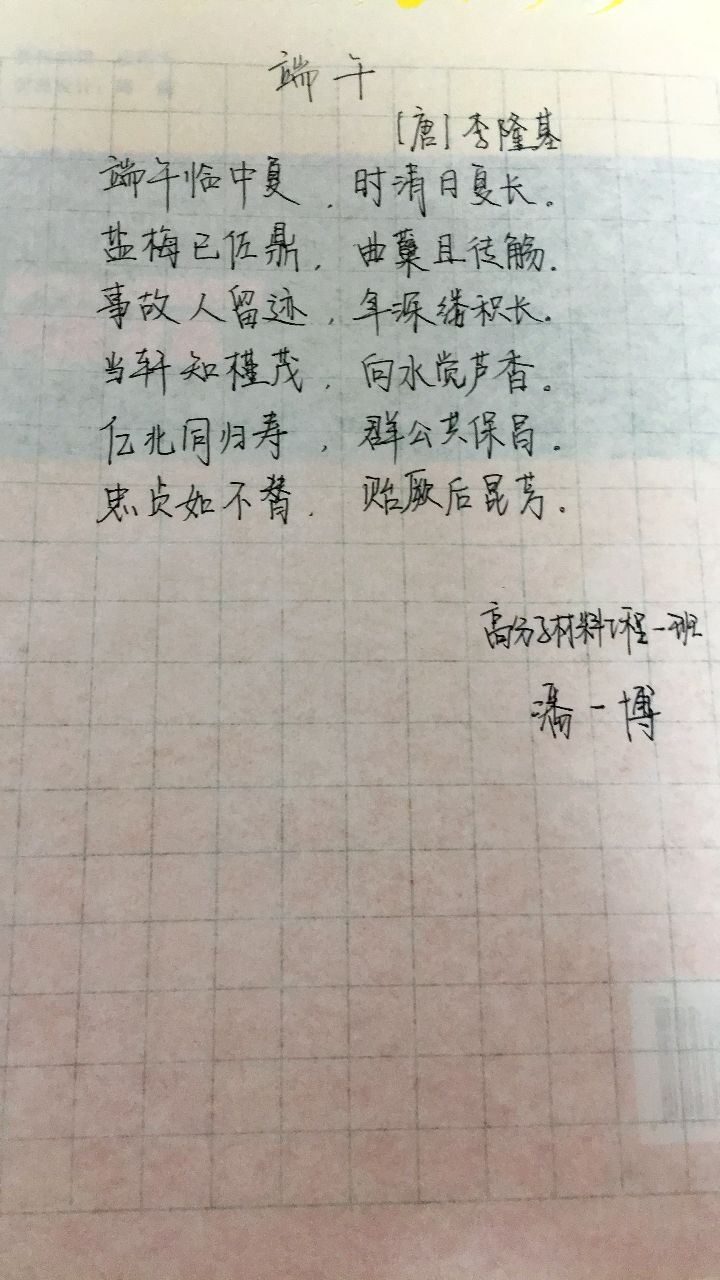 端午
[唐]李隆基
端午临中夏,时清日复长。
盐梅已佐鼎,曲蘖且传觞。
事故人留迹,年深缕积长。
当轩知槿茂,向水觉芦香。
亿兆同归寿,群公共保昌。
忠贞如不替,贻厥后昆芳。
高分子材料工程一班
潘一博